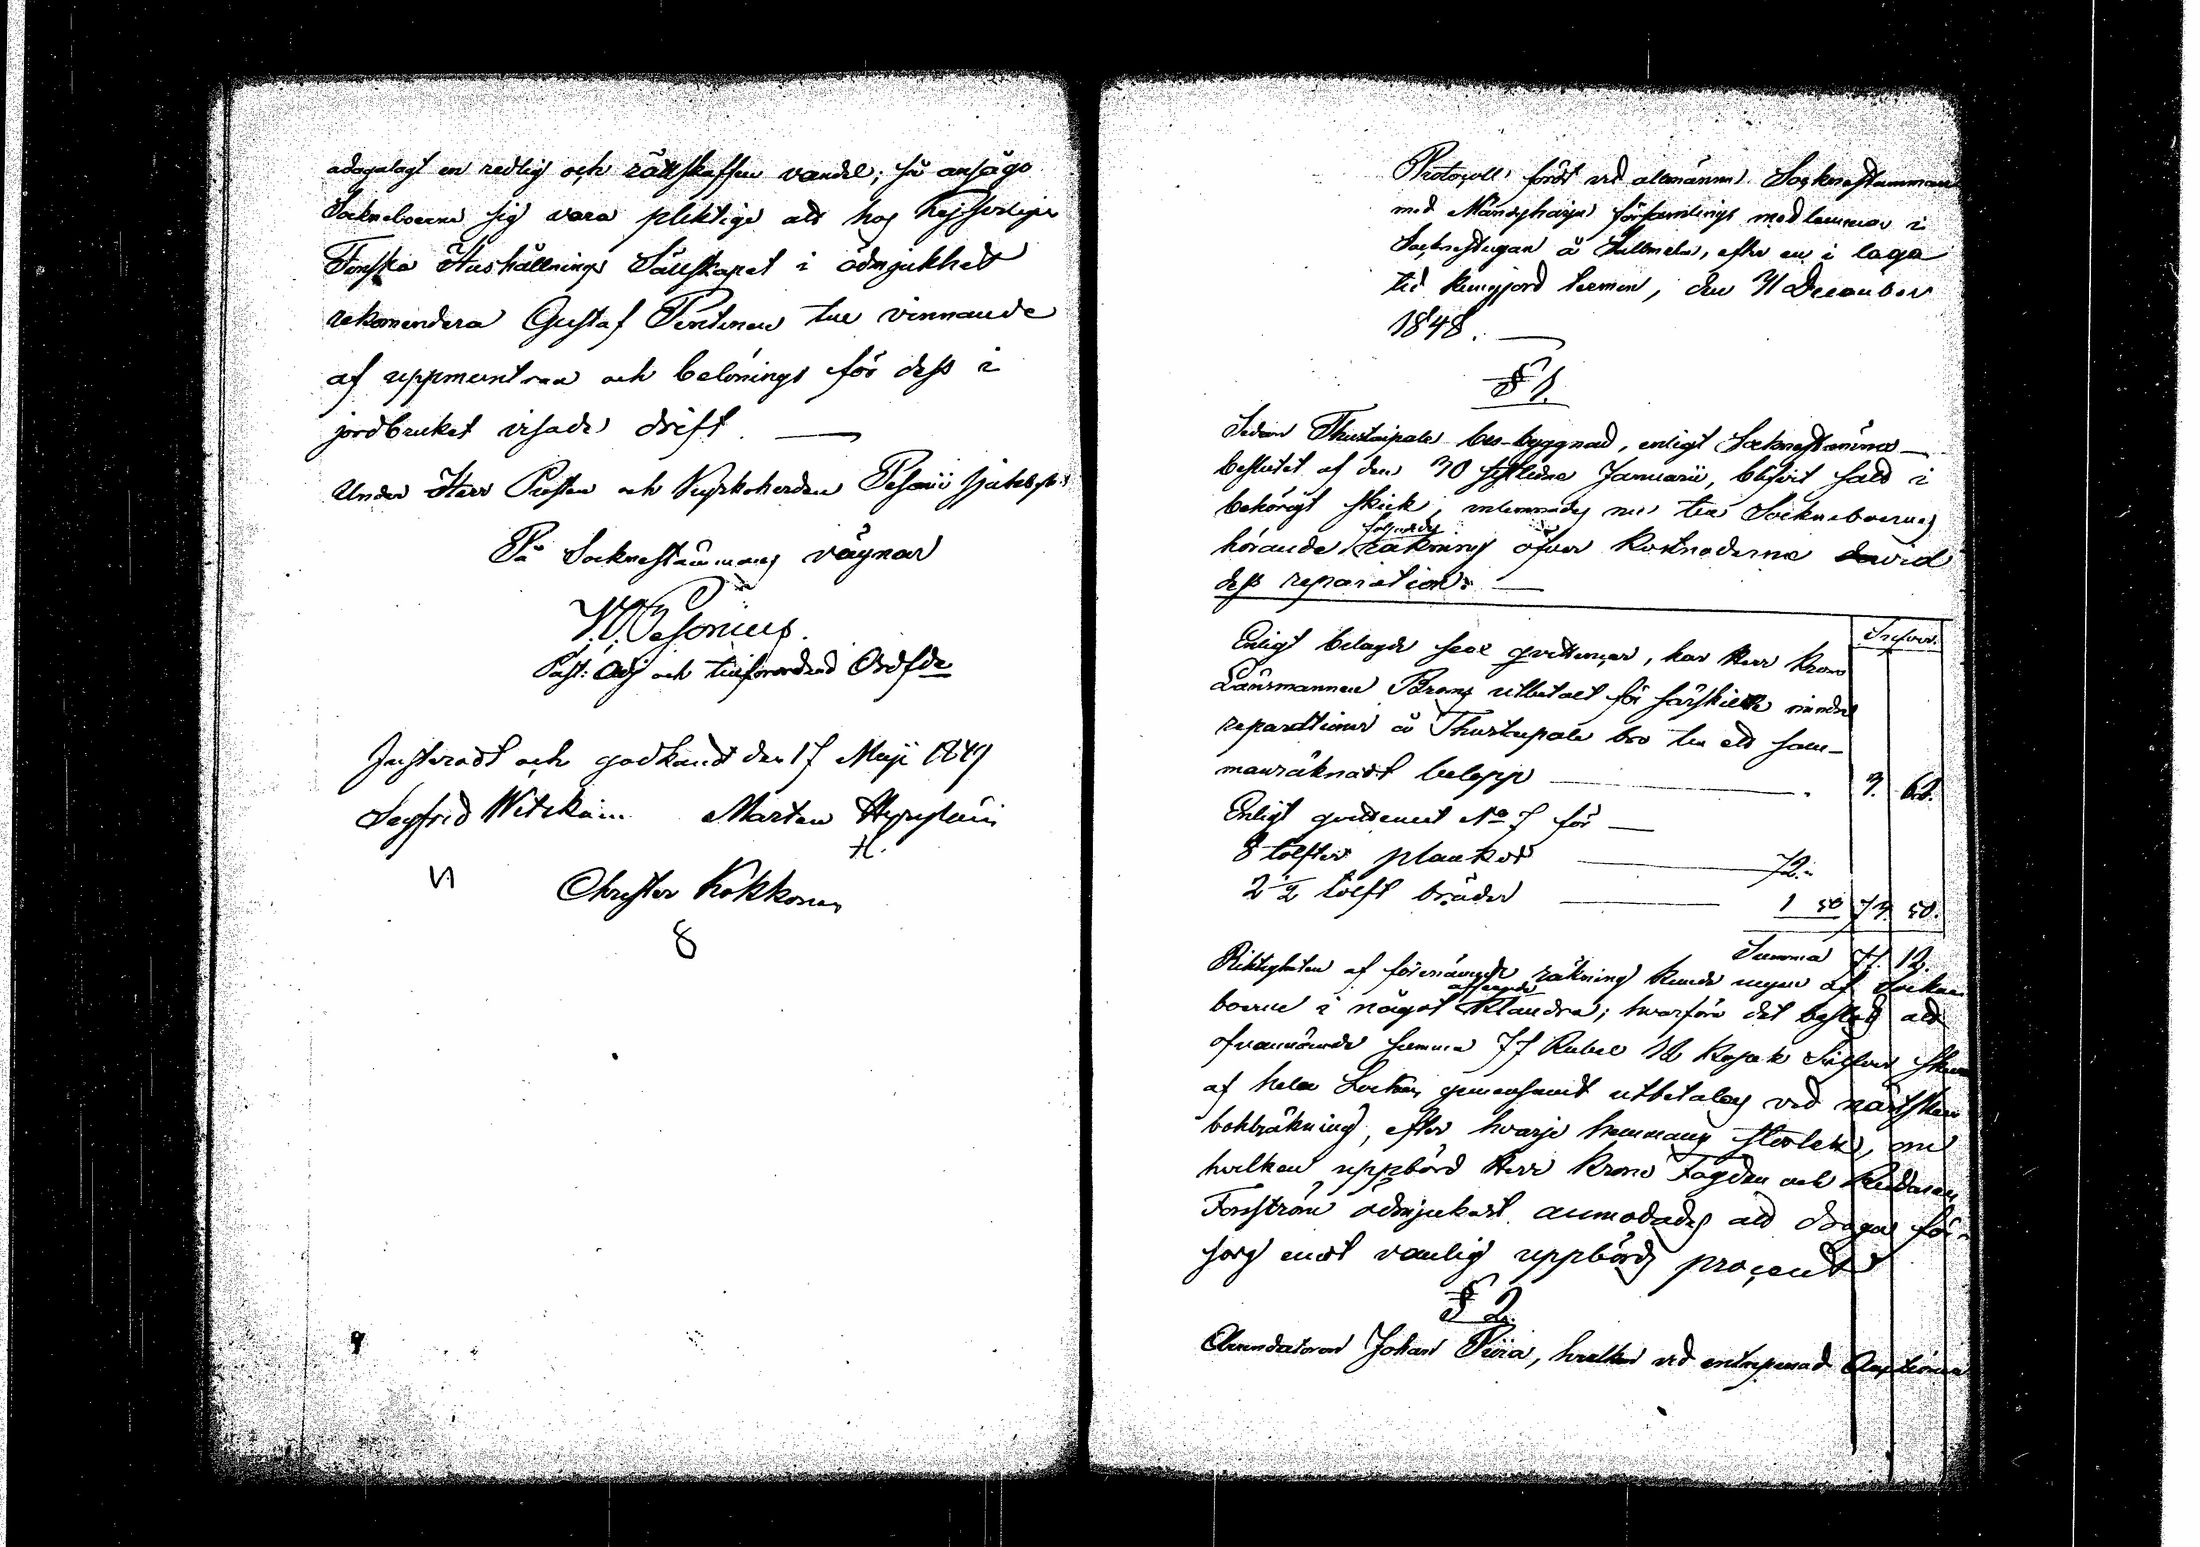 adagalagt en redlig och rättskaffen vandel; så ansågo
Sockneboerne sig vara pliktige att hos Kejserliga
Finska Hushållnings Sällskapet i ödmjukhet
rekomendera Gustaf Pentinen till vinnande
af uppmuntran och belönings för dess i
jordbruket visade drift. —
Under Herr Prosten och Kyrkoherden Pesonii sjukdoms
På Sockneståmmans vägnar
Pesonius.
Past: Adj och tillförordnad Ordfde
Justeradt och godkandt den 17 Maji 1849
Segfrid Mårten
Christer Kokkonen
8
Protocoll fördt vid allmänna Sockneståmman
med Mäntyharju församlings medlemmar i
Socknestugan å, efter en i laga
tid kungjord termin, den 31 December
1848. —
§ 1.
Sedan bro-byggnad, enligt Sockneståmma-
beslutet af den 30 sistledne Januarii, blifvit sald i
behörigt skick, inlemnades nu till Sockneboernes
hörande följande räkning öfver kostnaderna david
dess reparation: —
Silfver.
Enligt bilagde sex qvittencer, har Herr Krono
Länsmannen utbetalt för särskilte mindre
reparationer å bro till ett sam-
manräknadt belopp — 3. 62.
Enligt qvittencet No 7 för —
8 tolfter plankor — 72.
2 ½ tolft bräder — 1 50 73 50.
Summa 77. 12.
Riktigheten af förenämnde räkning kunde ingen af Sockne
boerne i något afseende klandra; hvarföre det beslöts att
ofvannämnde summa 77 Rubel 12 Kopek Silfver skulle
af hela Socknen gemensamt utbetalas vid
bokräkning, efter hvarje hemmans storlek, om
hvilken uppbörd Herr Krono Fogden och Riddaren
Forsström ödmjukast anmodades att draga för-
sorg emot vanlig uppbörds procent
§ 2.
Arrendatoren Johan, hvilken vid entreprenad Auctionen